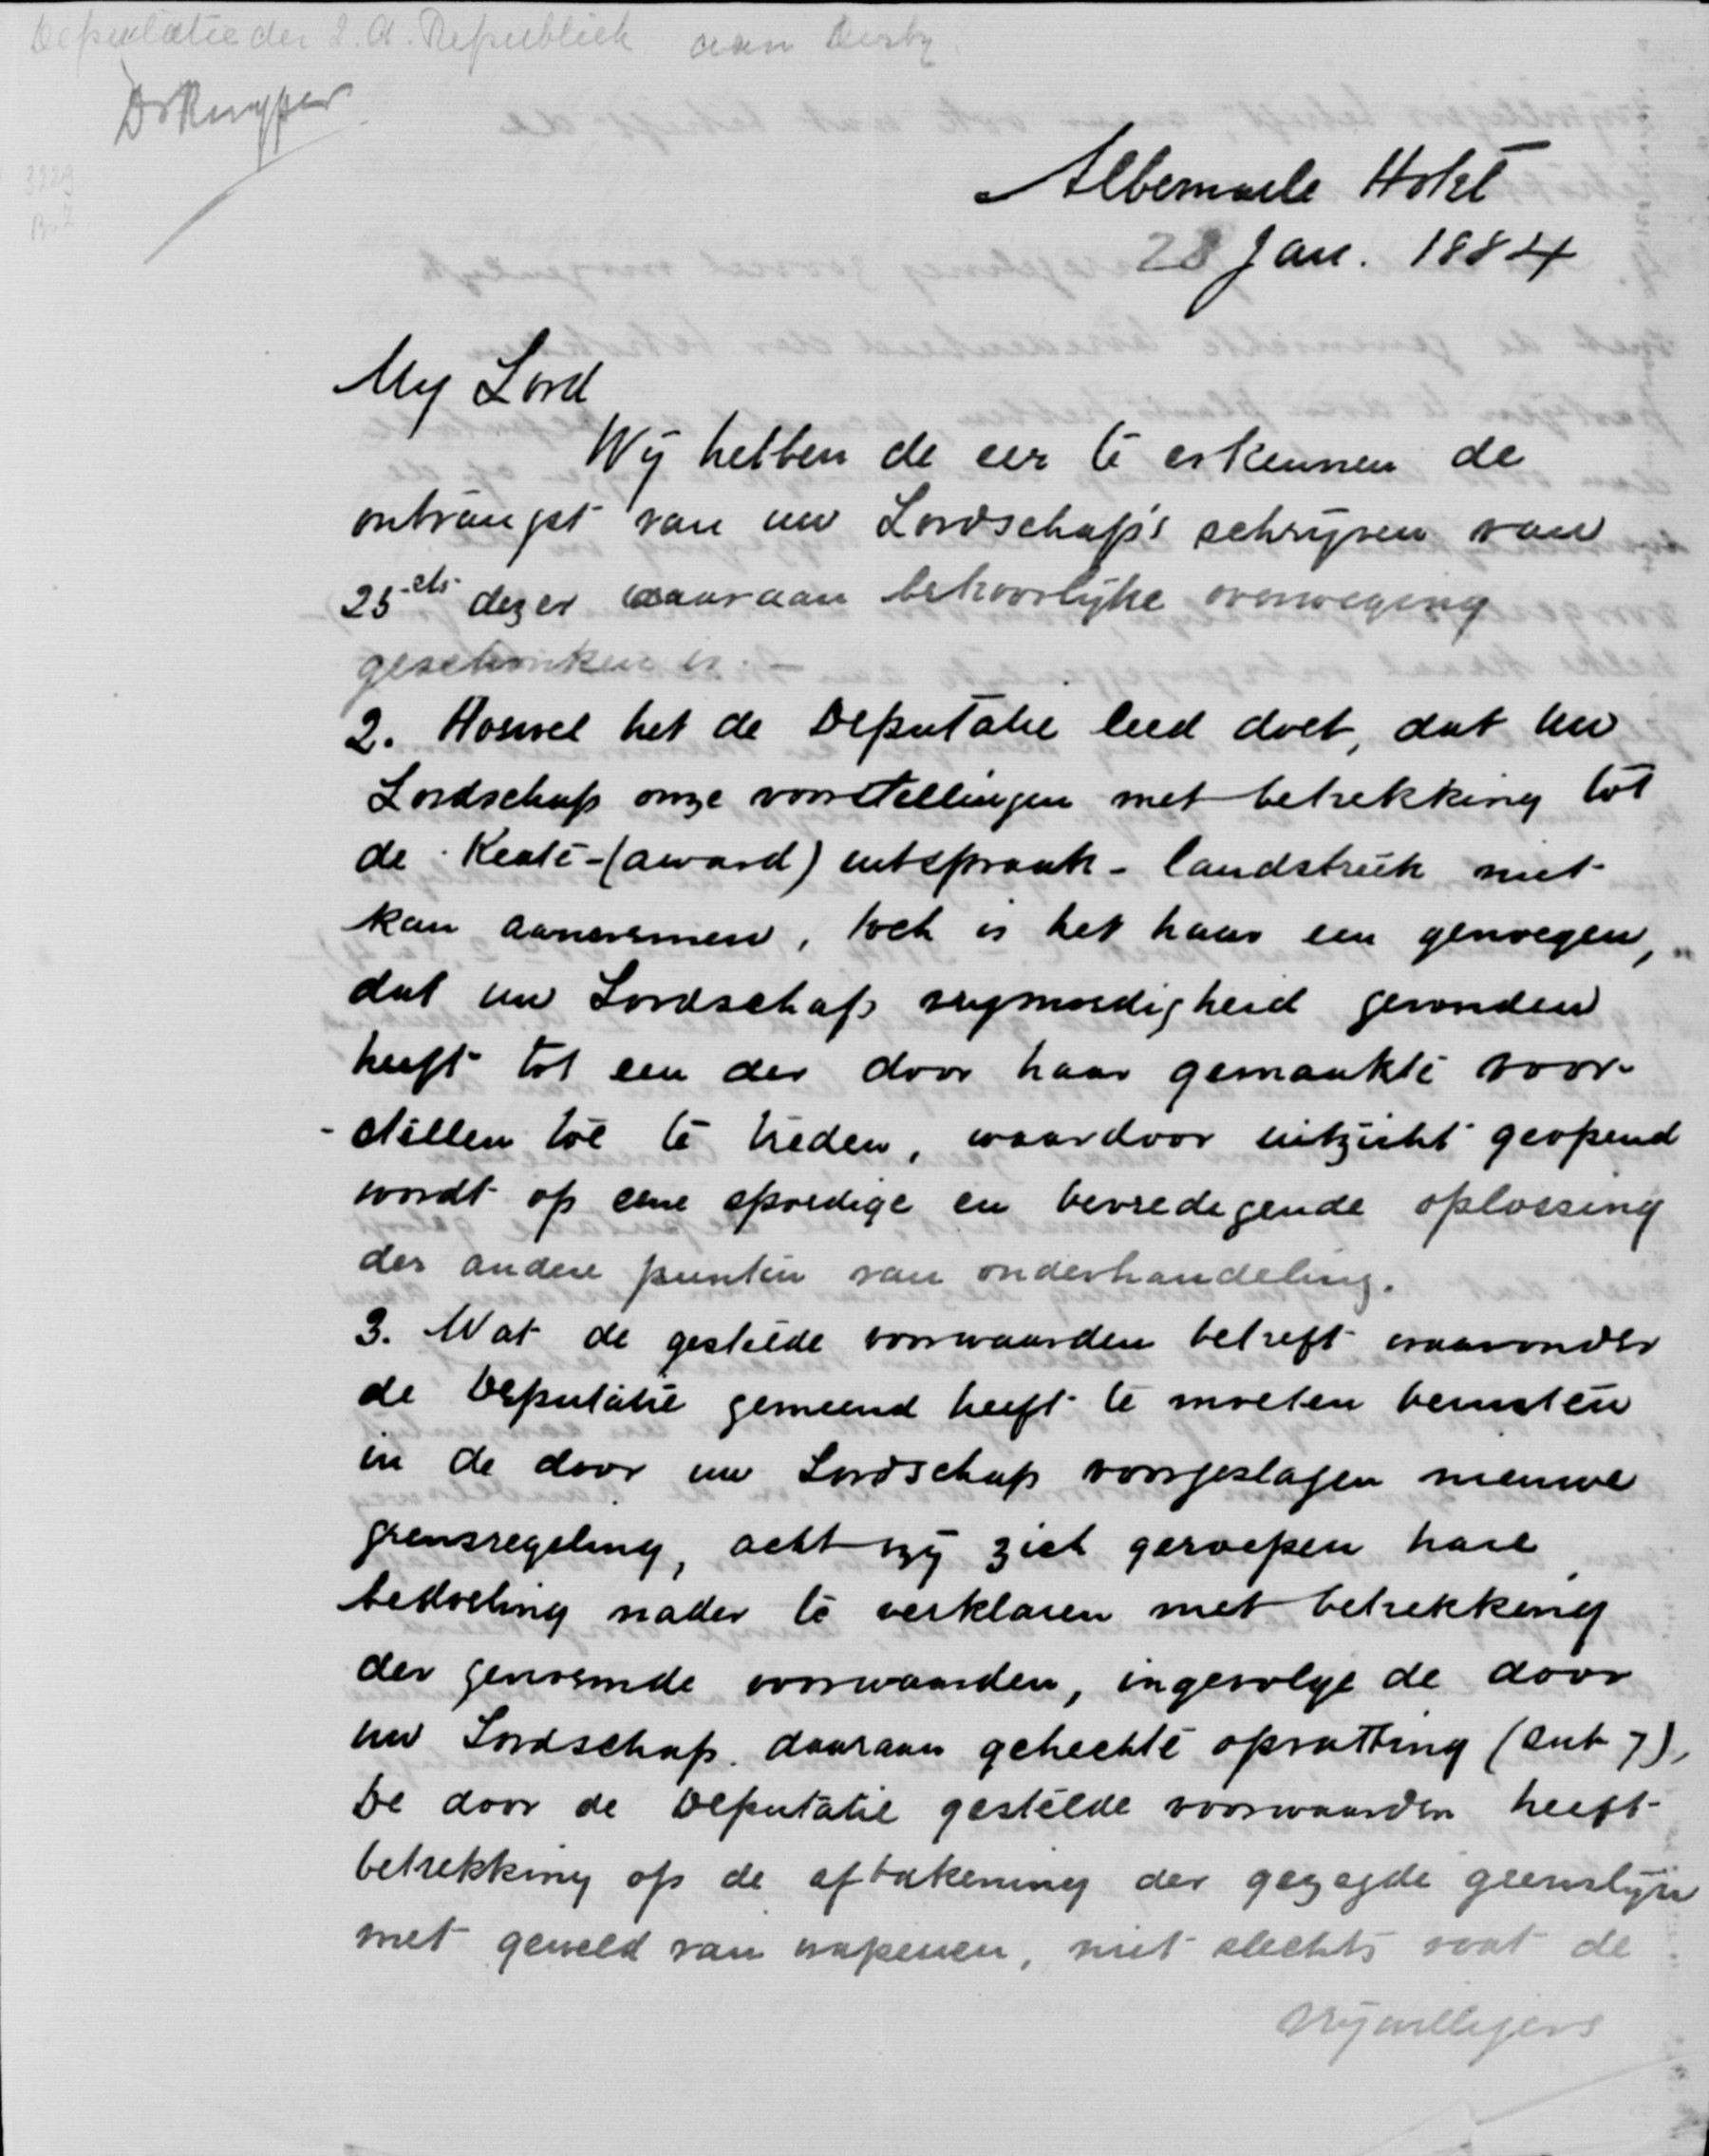 Deputatie der Z. A. Republiek aan Derby.
Dr Kuyper
3229
Albemarle Hotel
28 Jan. 1884
My Lord
Wij hebben de eer te erkennen de
ontvangst van uw Lordschap's schrijven van
25sts dezer waaraan behoorlijke overweging
geschonken is. -
2. Hoewel het de Deputatie leed doet, dat uw
Lordschap onze voorstellingen met betrekking tot
de Keate-(award) uitspraak-landstreek niet
kan aannemen, toch is het haar een genoegen,
dat uw Lordschap vrymoedigheid gevonden
heeft tot een der door haar gemaakte voor-
-stellen toe te treden, waardoor uitzicht geopend
wordt op eene spoedige en bevredigende oplossing
der andere punten van onderhandeling.
3. Wat de gestelde voorwaarden betreft waaronder
de Deputatie gemeend heeft te moeten berusten
in de door uw Lordschap voorgeslagen nieuwe
grensregeling, acht zij zich geroepen hare
bedoeling nader te verklaren met betrekking
der genoemde voorwaarden, ingevolge de door
uw Lordschap daaraan gehechte opvatting (sub 7),
De door de Deputatie gestelde voorwaarden heeft
betrekking op de afbakening der gezegde grenslijn
met geweld van wapenen, niet slechts wat de
vrijwilligers